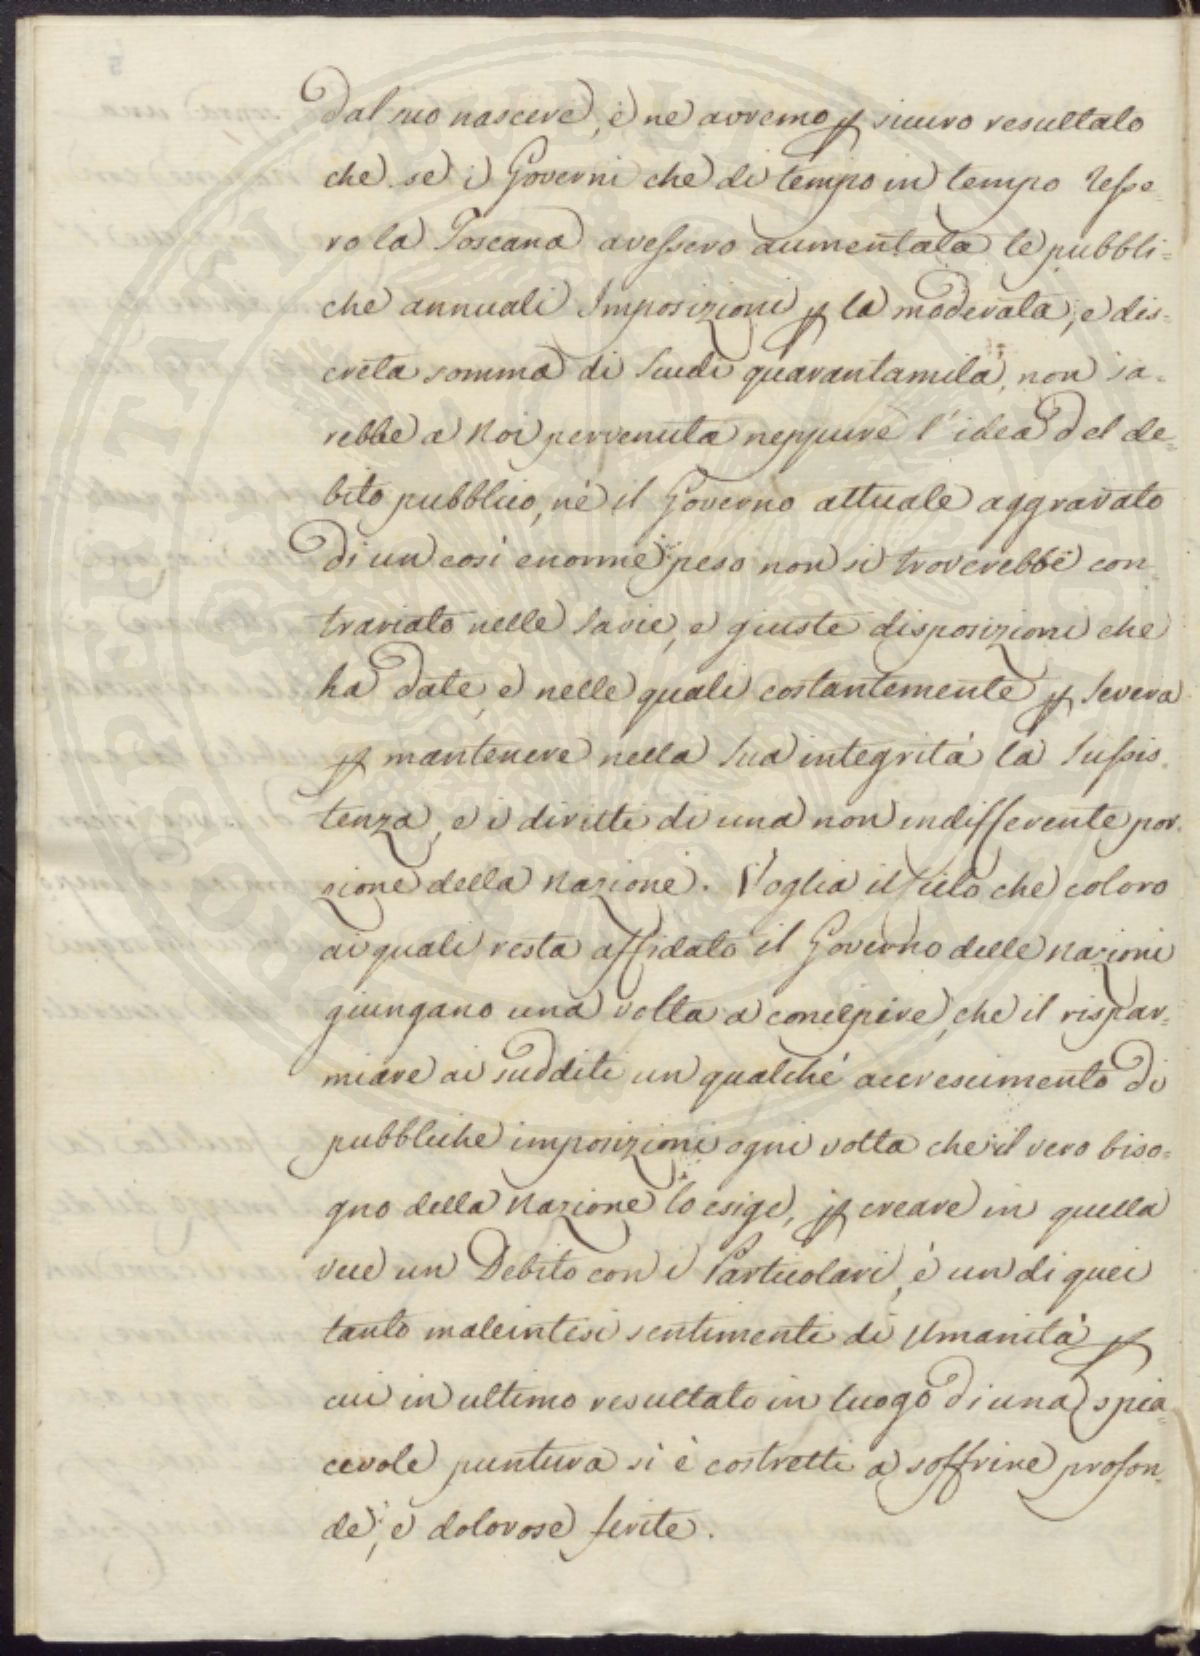 dal suo nascere, e ne avremo p sicuro resultato
che se i Governi che di tempo in tempo resse-
ro la Toscana avessero aumentata le pubbli-
che annuali Imposizioni p la moderata, e dis-
creta somma di Scudi quarantamila, non sa-
rebbe a Noi pervenuta neppure l'idea del de-
bito pubblico, nè il Governo attuale aggravato
di un così enorme peso non si troverebbe con
trariato nelle Savie, e giuste disposizioni che
ha date, e nelle quali costantemente p severa
p mantenere nella Sua integrità la Sussis-
tenza, e i diritti di una non indifferente por-
zione della Nazione. Voglia il Cielo che coloro
ai quali resta affidato il Governo delle Nazioni
giungano una volta a concepire, che il rispar-
miare ai sudditi un qualche accrescimento di
pubbliche imposizioni ogni volta che il vero biso-
gno della Nazione lo esige, p creare in quella
vece un Debito con i Particolari, è un di quei
tanto maleintesi sentimenti di Umanità p
cui in ultimo resultato in luogo di una spia-
cevole puntura si è costretti a soffrire profon-
de, e dolorose ferite.